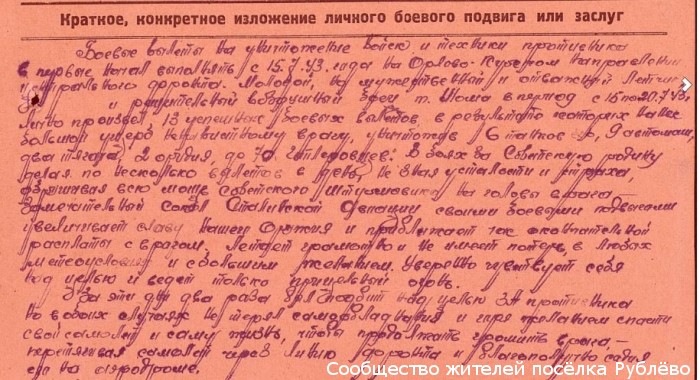 Краткое, конкретное изложение личного боевого подвига или заслуг
Боевые вылеты на уничтожение войск и техники противника
в первые начал выполнять с 15.7.43 года на Орлово-Курском направлении
Центрального фронта. Молодой, но мужественный и отважный летчик
и решительный воздушный боец т. Шома в период с 15 по 20.7.43
лично произвел 13 успешных боевых вылетов, в результате которых нанес
большой ущерб ненавистному врагу, уничтожив 6 танков, 9 автомашин,
два тягача, 2 орудия, до 70 гитлеровцев. В боях за Советскую родину
делая по несколько вылетов в день, не зная усталости и страха,
обрушивая всю мощь советского штурмовика на головы врага,—
замечательный сокол Сталинской авиации своими боевыми подвигами
увеличивает славу нашего оружия и приближает час окончательной
расплаты с врагом. Летает грамотно и не имеет потерь, в любых
метеоусловиях и с большим желанием. Уверенно чувствует себя
над целью и ведет только прицельный огонь.
За эти дни два раза был подбит над целью ЗА противника
но в обоих случаях не терял самообладания и горя желанием спасти
свой самолет и саму жизнь, чтобы продолжать громить врага,—
перетягивал самолет через линию фронта и благополучно садил
его на аэродроме.
Сообщество жителей посёлка Рублёво